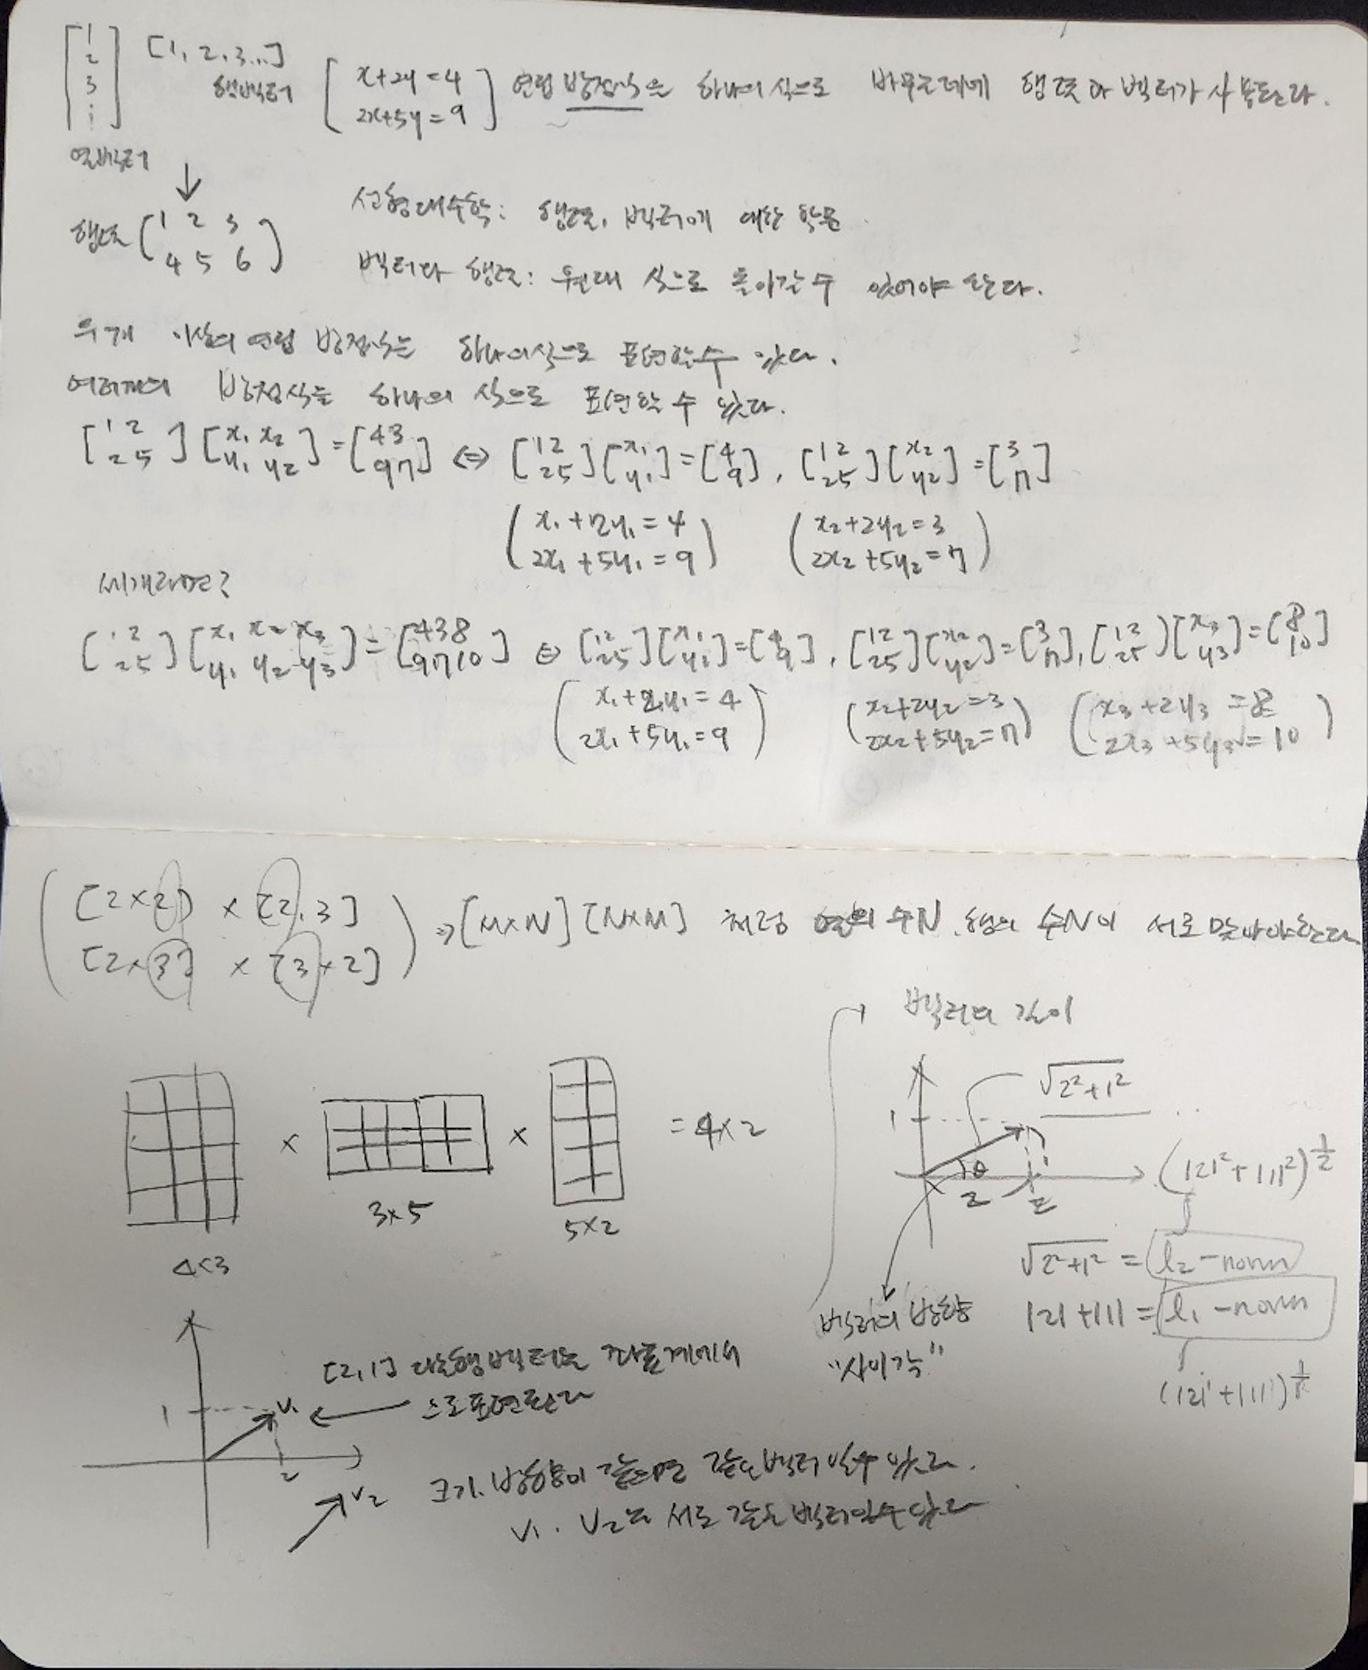 [1 2 3 ⋮] [1, 2, 3...]
행벡터
[x+2y=4
2x+5y=9] 연립 방정식을 하나의 식으로 바꾸는데에 행렬과 벡터가 사용된다.
열벡터
↓
행렬 (1 2 3
4 5 6)
선형대수학: 행렬, 벡터에 대한 학문
벡터와 행렬: 원래 식으로 돌아갈 수 있어야 한다.
두개 이상의 연립 방정식은 하나의 식으로 표현할 수 있다.
여러개의 방정식을 하나의 식으로 표현할 수 있다.
[1 2
2 5] [x₁ x₂
y₁ y₂] = [4 3
9 7] ⇔ [1 2
2 5] [x₁
y₁] = [4
9], [1 2
2 5] [x₂
y₂] = [3
7]
(x₁+2y₁=4
2x₁+5y₁=9)
(x₂+2y₂=3
2x₂+5y₂=7)
세개라면?
[1 2
2 5] [x₁ x₂ x₃
y₁ y₂ y₃] = [4 3 8
9 7 10] ⇔ [1 2
2 5] [x₁
y₁] = [4
9], [1 2
2 5] [x₂
y₂] = [3
7], [1 2
2 5] [x₃
y₃] = [8
10]
(x₁+2y₁=4
2x₁+5y₁=9)
(x₂+2y₂=3
2x₂+5y₂=7)
(x₃+2y₃=8
2x₃+5y₃=10)
([2×2] × [2, 3]
[2×3] × [3×2]) ⇒ [M×N] [N×M] 처럼 열의 수N, 행의 수N이 서로 맞아야한다
벡터의 길이
√2²+1²
1
θ
2
2
(|2|²+|1|²)^½
× × = 4×2
4×3
3×5
5×2
√2²+1² = l₂-norm
|2|+|1| = l₁-norm
(|2|¹+|1|¹)^¹⁄₁
벡터의 방향
"사이각"
[2,1] 라는 행벡터는 좌표계에서
으로 표현된다
1
2
v₁
v₂
크기, 방향이 같으면 같은 벡터 일수 있다.
v₁, v₂는 서로 같은 벡터일수있다